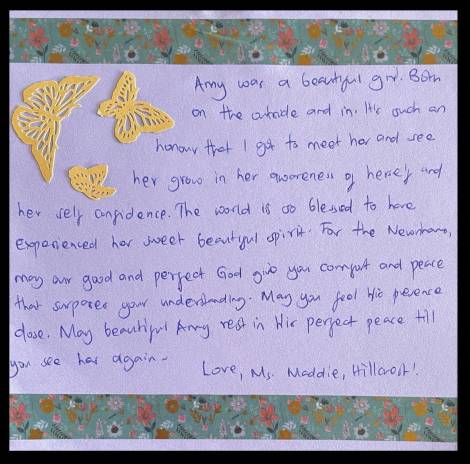 Amy was a beautiful girl. Both
on the outside and in. It's such an
honour that I got to meet her and see
her grow in her awareness of herself and
her self confidence. The world is so blessed to have
experienced her sweet beautiful spirit. For the Newnhams,
may our good and perfect God give you comfort and peace
that surpasses your understanding. May you feel His presence
close. May beautiful Amy rest in His perfect peace till
you see her again~
Love, Ms. Maddie, Hillcrest!